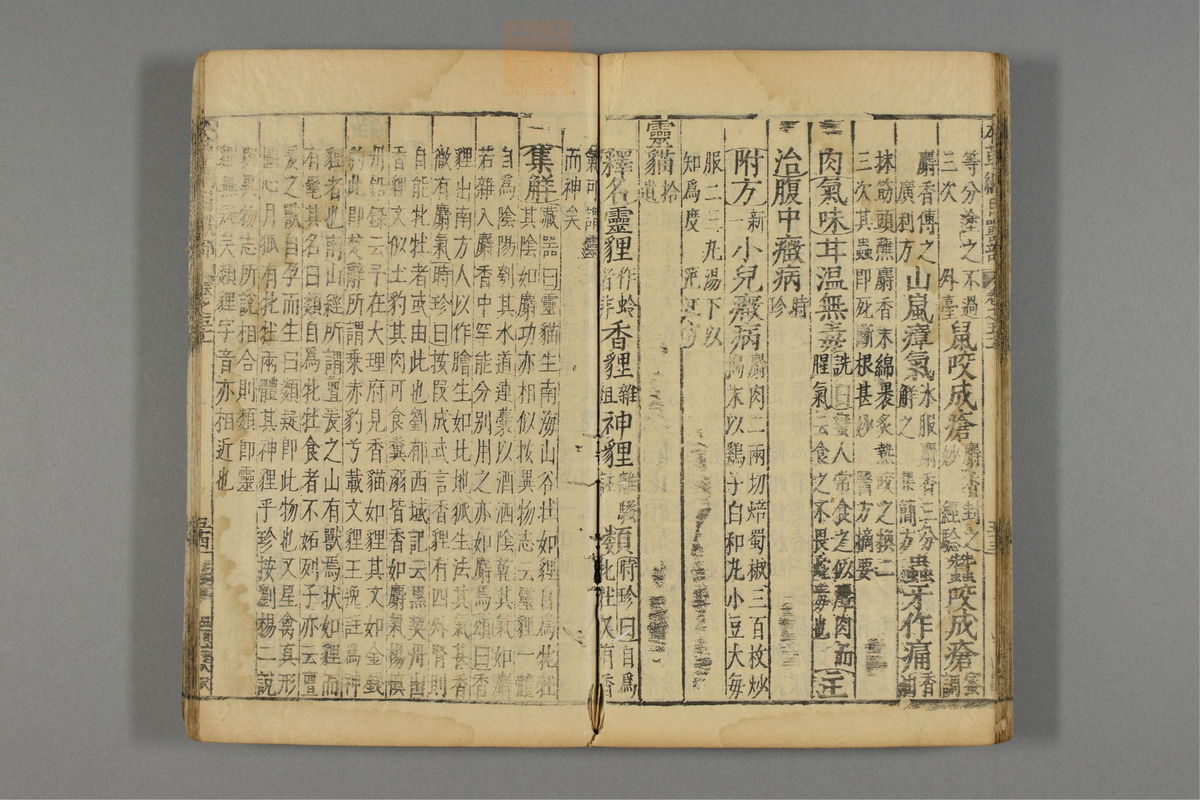 等分塗之不過三次 外臺 鼠咬成瘡 麝香封之妙 經驗 蠶咬成瘡 蜜調
麝香傅之 廣利方 山嵐瘴氣 水服麝香三分解之 集簡方 蟲牙作痛 香油
抹筋頭蘸麝香末綿裹炙熱咬之換二三次其蟲即死斷根甚妙 醫方摘要
肉 氣味 甘溫無毒 詵曰蠻人常食之似麞肉而腥氣云食之不畏蛇毒也 主
治 腹中癥病 時珍
附方 新一 小兒癥病 麝肉二兩切焙蜀椒三百枚炒搗末以鷄子白和丸小豆大每
服二三丸湯下以知為度
靈貓 拾遺
釋名 靈狸 作蛉者非 香狸 雜俎 神狸 離騷註 類 時珍曰自為牝牡又有香
氣可謂靈而神矣
集解 藏器曰靈貓生南海山谷狀如狸自為牝牡
其陰如麝功亦相似按異物志云靈狸一體
自為陰陽刳其水道連囊以酒洒陰乾其氣如麝
若雜入麝香中罕能分別用之亦如麝焉頌曰香
狸出南方人以作膾生如此地狐生法其氣甚香
微有麝氣時珍曰按段成式言香狸有四外腎則
自能牝牡者或由此也劉郁西域記云黑契丹出
香狸文似土豹其肉可食糞溺皆香如麝氣楊慎
丹鉛錄云予在大理府見香貓如狸其文如金錢
豹此即楚辭所謂乘赤豹兮載文狸王逸註為神
狸者也南山經所謂亶爰之山有獸焉狀如狸而
有髦其名曰類自為牝牡食者不妬列子亦云亶
爰之獸自孕而生曰類疑即此物也又星禽真形
圖心月狐有牝牡兩體其神狸乎珍按劉楊二說
與異物志所說相合則類即靈
狸無疑矣類狸字音亦相近也